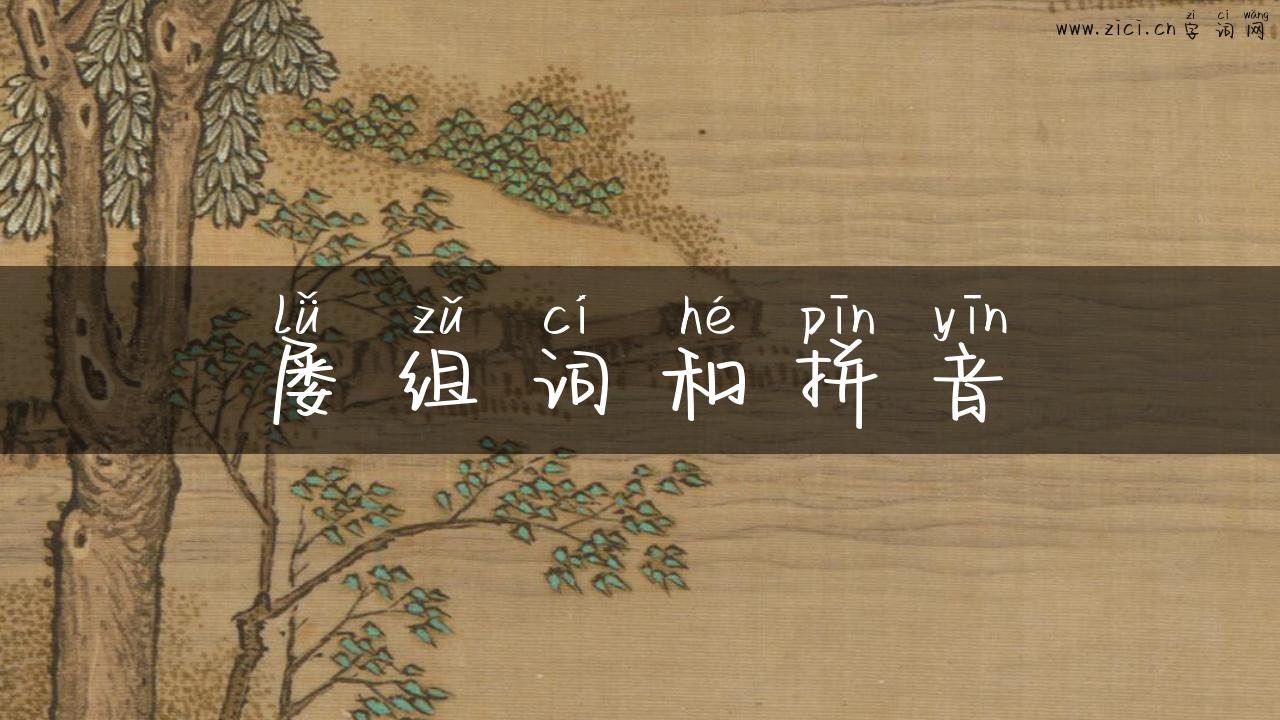 zì cí wǎng
www.zici.cn 字词网
lǚ zǔ cí hé pīn yīn
屡组词和拼音